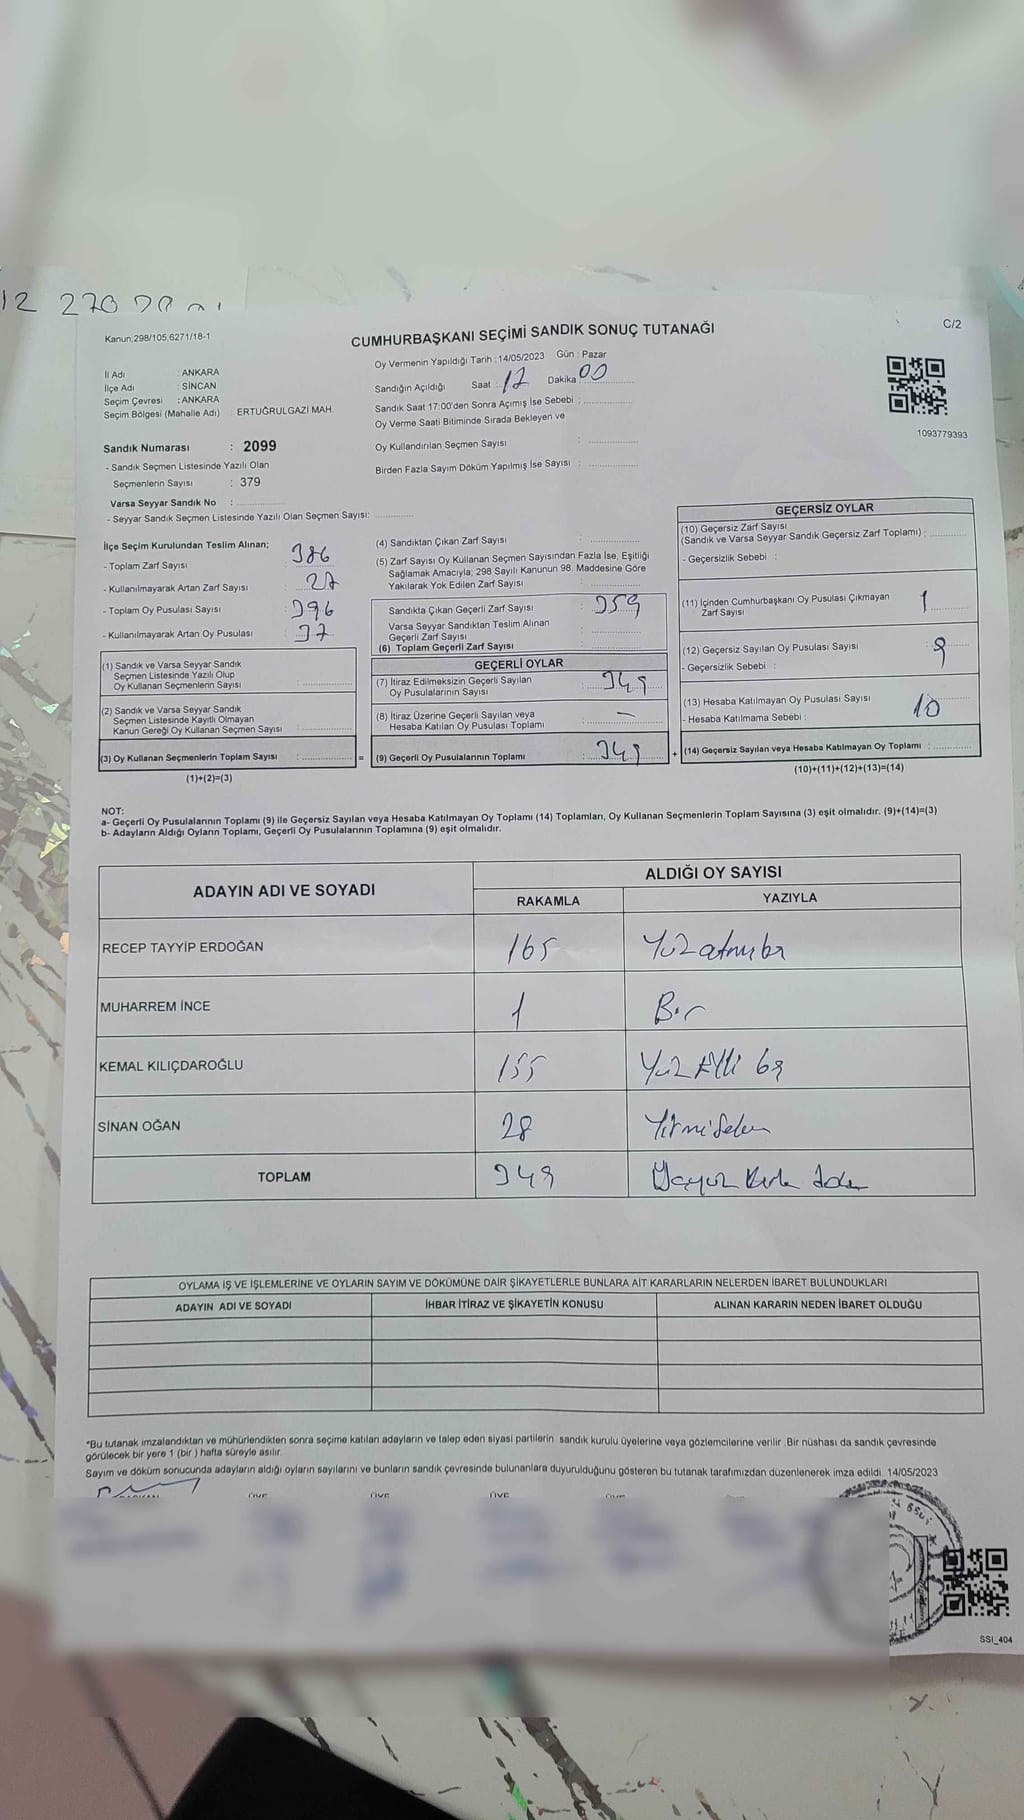 12 270
Kanun;298/105,6271/18-1
CUMHURBAŞKANI SEÇİMİ SANDIK SONUÇ TUTANAĞI
C/2
İl Adı : ANKARA
İlçe Adı : SİNCAN
Seçim Çevresi : ANKARA
Seçim Bölgesi (Mahalle Adı) : ERTUĞRULGAZİ MAH.
Oy Vermenin Yapıldığı Tarih :14/05/2023 Gün : Pazar
Sandığın Açıldığı Saat : 17 Dakika 00
Sandık Saat 17:00'den Sonra Açımış İse Sebebi :
Oy Verme Saati Bitiminde Sırada Bekleyen ve
Oy Kullandırılan Seçmen Sayısı :
Birden Fazla Sayım Döküm Yapılmış İse Sayısı :
1093779393
Sandık Numarası : 2099
- Sandık Seçmen Listesinde Yazılı Olan
Seçmenlerin Sayısı : 379
Varsa Seyyar Sandık No :
- Seyyar Sandık Seçmen Listesinde Yazılı Olan Seçmen Sayısı:
İlçe Seçim Kurulundan Teslim Alınan;
- Toplam Zarf Sayısı : 386
- Kullanılmayarak Artan Zarf Sayısı : 27
- Toplam Oy Pusulası Sayısı : 396
- Kullanılmayarak Artan Oy Pusulası : 37
(1) Sandık ve Varsa Seyyar Sandık
Seçmen Listesinde Yazılı Olup
Oy Kullanan Seçmenlerin Sayısı :
(2) Sandık ve Varsa Seyyar Sandık
Seçmen Listesinde Kayıtlı Olmayan
Kanun Gereği Oy Kullanan Seçmen Sayısı :
(3) Oy Kullanan Seçmenlerin Toplam Sayısı : =
(1)+(2)=(3)
(4) Sandıktan Çıkan Zarf Sayısı :
(5) Zarf Sayısı Oy Kullanan Seçmen Sayısından Fazla İse, Eşitliği
Sağlamak Amacıyla; 298 Sayılı Kanunun 98. Maddesine Göre
Yakılarak Yok Edilen Zarf Sayısı :
Sandıkta Çıkan Geçerli Zarf Sayısı : 359
Varsa Seyyar Sandıktan Teslim Alınan
Geçerli Zarf Sayısı :
(6) Toplam Geçerli Zarf Sayısı :
GEÇERLİ OYLAR
(7) İtiraz Edilmeksizin Geçerli Sayılan
Oy Pusulalarının Sayısı : 349
(8) İtiraz Üzerine Geçerli Sayılan veya
Hesaba Katılan Oy Pusulası Toplamı : —
(9) Geçerli Oy Pusulalarının Toplamı : 349 +
GEÇERSİZ OYLAR
(10) Geçersiz Zarf Sayısı
(Sandık ve Varsa Seyyar Sandık Geçersiz Zarf Toplamı) :
- Geçersizlik Sebebi :
(11) İçinden Cumhurbaşkanı Oy Pusulası Çıkmayan
Zarf Sayısı : 1
(12) Geçersiz Sayılan Oy Pusulası Sayısı : 9
- Geçersizlik Sebebi :
(13) Hesaba Katılmayan Oy Pusulası Sayısı : 10
- Hesaba Katılmama Sebebi :
(14) Geçersiz Sayılan veya Hesaba Katılmayan Oy Toplamı :
(10)+(11)+(12)+(13)=(14)
NOT:
a- Geçerli Oy Pusulalarının Toplamı (9) ile Geçersiz Sayılan veya Hesaba Katılmayan Oy Toplamı (14) Toplamları, Oy Kullanan Seçmenlerin Toplam Sayısına (3) eşit olmalıdır. (9)+(14)=(3)
b- Adayların Aldığı Oyların Toplamı, Geçerli Oy Pusulalarının Toplamına (9) eşit olmalıdır.
ADAYIN ADI VE SOYADI
ALDIĞI OY SAYISI
RAKAMLA YAZIYLA
RECEP TAYYİP ERDOĞAN 165 Yüzatmışbş
MUHARREM İNCE 1 Bir
KEMAL KILIÇDAROĞLU 155 Yüz Elli beş
SİNAN OĞAN 28 Yirmi Sekiz
TOPLAM 349
OYLAMA İŞ VE İŞLEMLERİNE VE OYLARIN SAYIM VE DÖKÜMÜNE DAİR ŞİKAYETLERLE BUNLARA AİT KARARLARIN NELERDEN İBARET BULUNDUKLARI
ADAYIN ADI VE SOYADI İHBAR İTİRAZ VE ŞİKAYETİN KONUSU ALINAN KARARIN NEDEN İBARET OLDUĞU
*Bu tutanak imzalandıktan ve mühürlendikten sonra seçime katılan adayların ve talep eden siyasi partilerin sandık kurulu üyelerine veya gözlemcilerine verilir .Bir nüshası da sandık çevresinde
görülecek bir yere 1 (bir ) hafta süreyle asılır.
Sayım ve döküm sonucunda adayların aldığı oyların sayılarını ve bunların sandık çevresinde bulunanlara duyurulduğunu gösteren bu tutanak tarafımızdan düzenlenerek imza edildi. 14/05/2023
ÜYE ÜYE ÜYE ÜYE
SSI_404